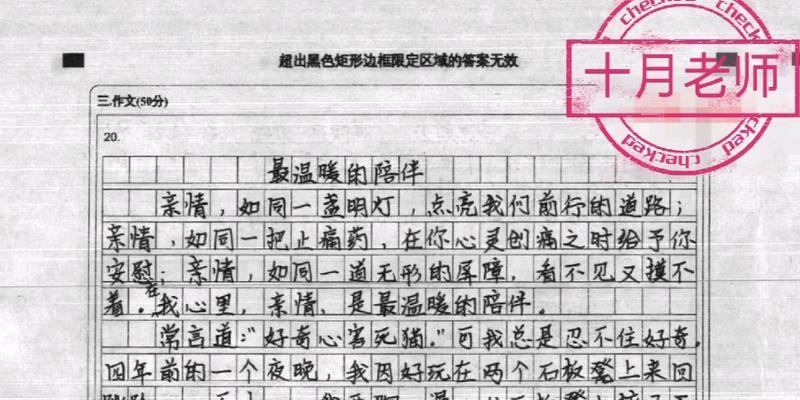 超出黑色矩形边框限定区域的答案无效
checked
十月老师
checked
三.作文(50分)
20.
最温暖的陪伴
亲情，如同一盏明灯，点亮我们前行的道路；
亲情，如同一把止痛药，在你心灵创痛之时给予你
安慰；亲情，如同一道无形的屏障，看不见又摸不
着。在我心里，亲情，是最温暖的陪伴。
常言道：“好奇心害死猫。”可我总是忍不住好奇。
四年前的一个夜晚，我因好玩在两个石板凳上来回